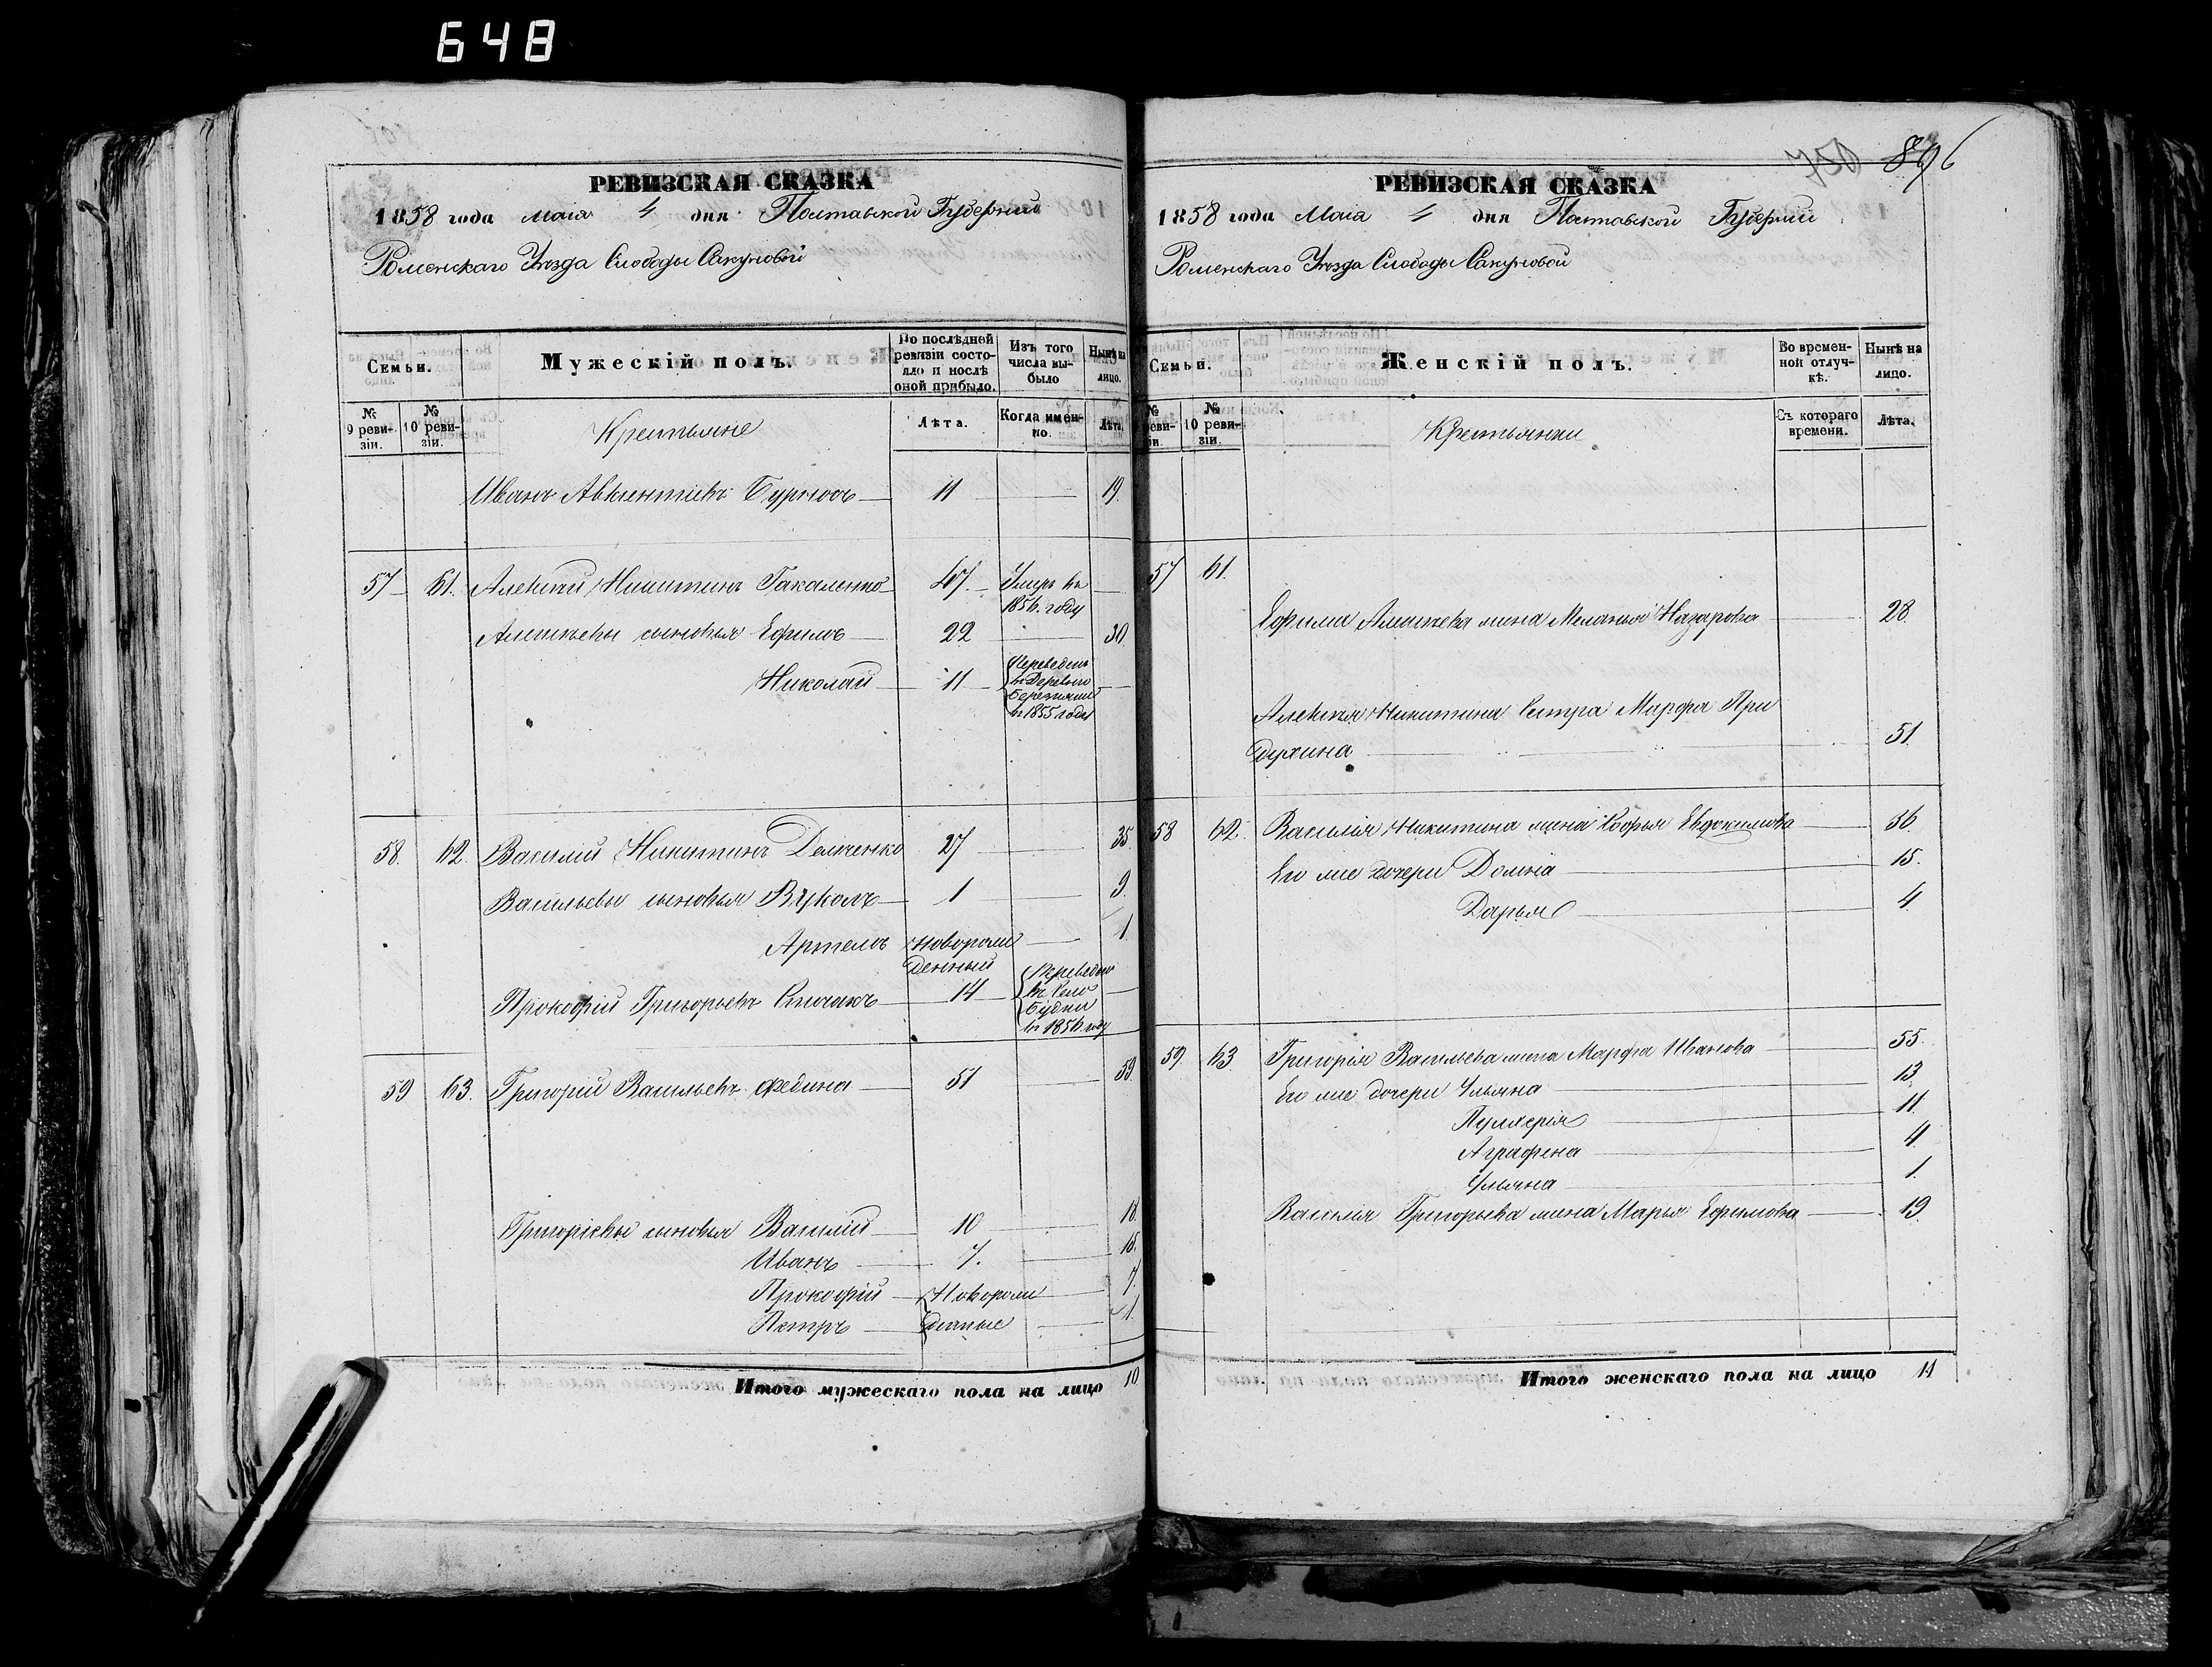 648
РЕВИЗСКАЯ СКАЗКА
1858 года Маія 4 дня Полтавской Губерніи
Роменскаго Уезда Слободы Сакуновой
Семьи.
Мужескій полъ.
По послѣдней ревизіи состояло и послѣ оной прибыло.
Изъ того числа выбыло
Нынѣ на лицо.
№ 9 ревизіи.
№ 10 ревизіи.
Крестьяне
Лѣта.
Когда именно.
Лѣта.
Иванъ Авксентіевъ 11 19.
57 61. Алексей Никитинъ Гакаленко 47. Умеръ въ
1856. году
Алексѣевы сыновья Ефимъ 22 30.
Николай 11 Переведенъ
въ Деревню
въ 1855 годе
58. 62. Василій Никитинъ Демченко 27 35.
Васильевы сыновья Вуколъ 1 9.
Артемъ новорож 1.
денный
Прокофій Григорьевъ Спичакъ 14 Переведенъ
въ Село
Будки
въ 1856. году
59 63. Григорій Васильевъ Федина 51 59.
Григоріевы сыновья Василій 10 18.
Иванъ 7. 15.
Прокофій Новорож 7.
Петръ денные 1.
Итого мужескаго пола на лицо 10
750 896
РЕВИЗСКАЯ СКАЗКА
1858 года Маіа 4 дня Полтавской Губерніи
Роменскаго Уезда Слободы Сакуновой
Семьи.
Женскій полъ.
Во временной отлучкѣ.
Нынѣ на лицо.
№ ревизіи.
№ 10 ревизіи.
Крестьянки
Съ котораго времени.
Лѣта.
57 61.
Ефима Алексѣева жена Меланья Назарова 28.
Алексея Никитина Сестра Марфа При
духина 51.
58 62. Василія Никитина жена Софья Евдокимова 36.
Его же дочери Домна 15.
Дарья 4.
59 63 Григорія Васильева жена Марфа Иванова 55.
Его же дочери Ульяна 13.
Пулхерія 11.
Аграфена 4.
Ульяна 1.
Василія Григорьева жена Марья Ефимова 19.
Итого женскаго пола на лицо 11